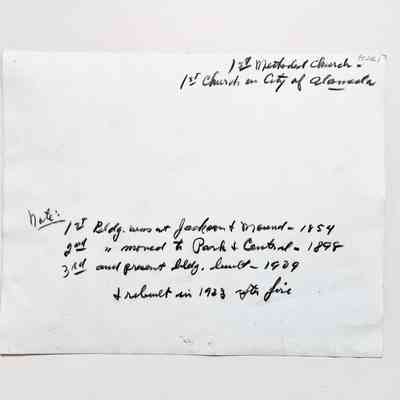 1st Methodist Church -
1st Church in City of Alameda
Note:
1st Bldg. was at Jackson & Mound - 1854
2nd " moved to Park & Central - 1898
3rd and present bldg. built - 1909
& rebuilt in 1923 after fire